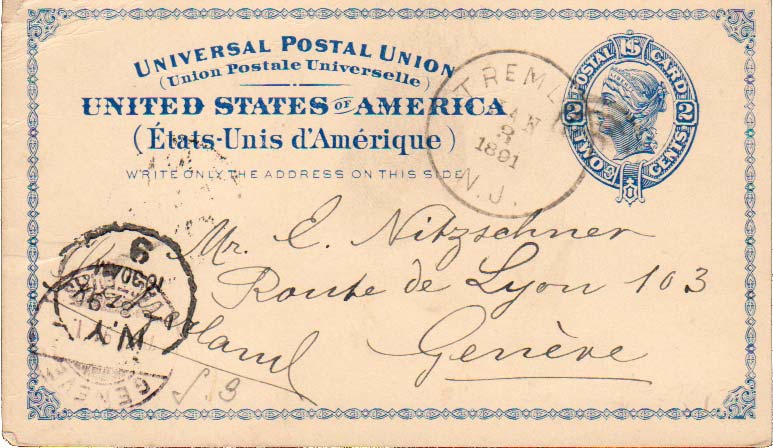 UNIVERSAL POSTAL UNION
(Union Postale Universelle)
UNITED STATES OF AMERICA
(États-Unis d'Amérique)
WRITE ONLY THE ADDRESS ON THIS SIDE
POSTAL CARD
2 2
TWO CENTS
JAN
8
1891
N.J.
Mr. E. Nitzschner
Route de Lyon 103
Genève
N.Y.
10-30AM
9